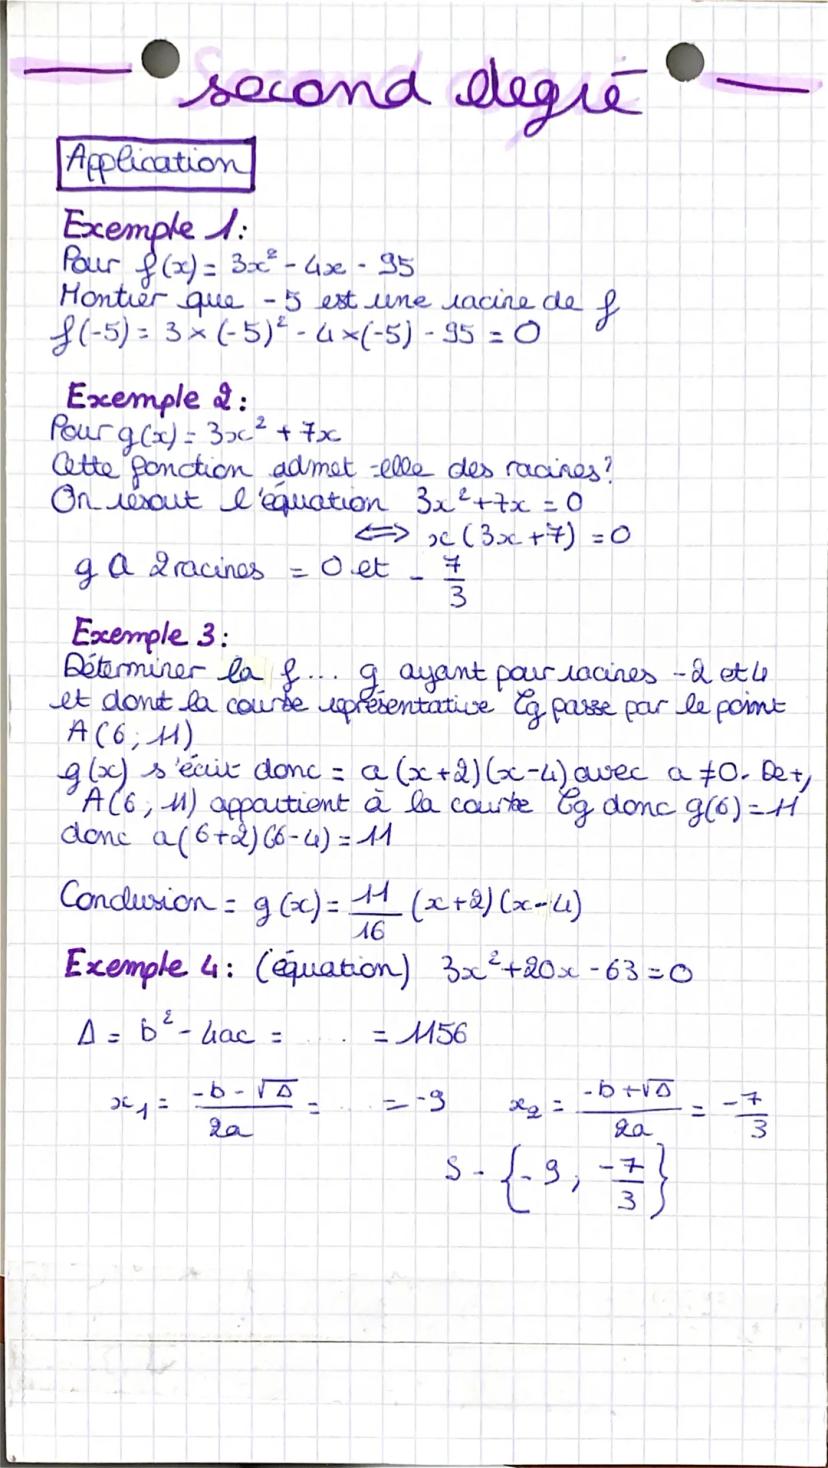 second degré
Application
Exemple 1:
Pour f(x) = 3x² - 4x - 95
Montrer que -5 est une racine de f
f(-5) = 3 × (-5)² - 4 × (-5) - 95 = 0
Exemple 2:
Pour g(x) = 3x² + 7x
Cette fonction admet-elle des racines?
On résout l'équation 3x² + 7x = 0
⟺ x(3x + 7) = 0
g a 2 racines = 0 et -7/3
Exemple 3:
Déterminer la f... g ayant pour racines -2 et 4
et dont la courbe représentative Cg passe par le point
A(6; 11)
g(x) s'écrit donc = a(x+2)(x-4) avec a ≠ 0. De +,
A(6; 11) appartient à la courbe Cg donc g(6) = 11
donc a(6+2)(6-4) = 11
Conclusion = g(x) = 11/16 (x+2)(x-4)
Exemple 4: (équation) 3x² + 20x - 63 = 0
Δ = b² - 4ac = .... = 1156
x₁ = (-b - √Δ)/2a = .... = -9 x₂ = (-b + √Δ)/2a = -7/3
S = {-9; -7/3}